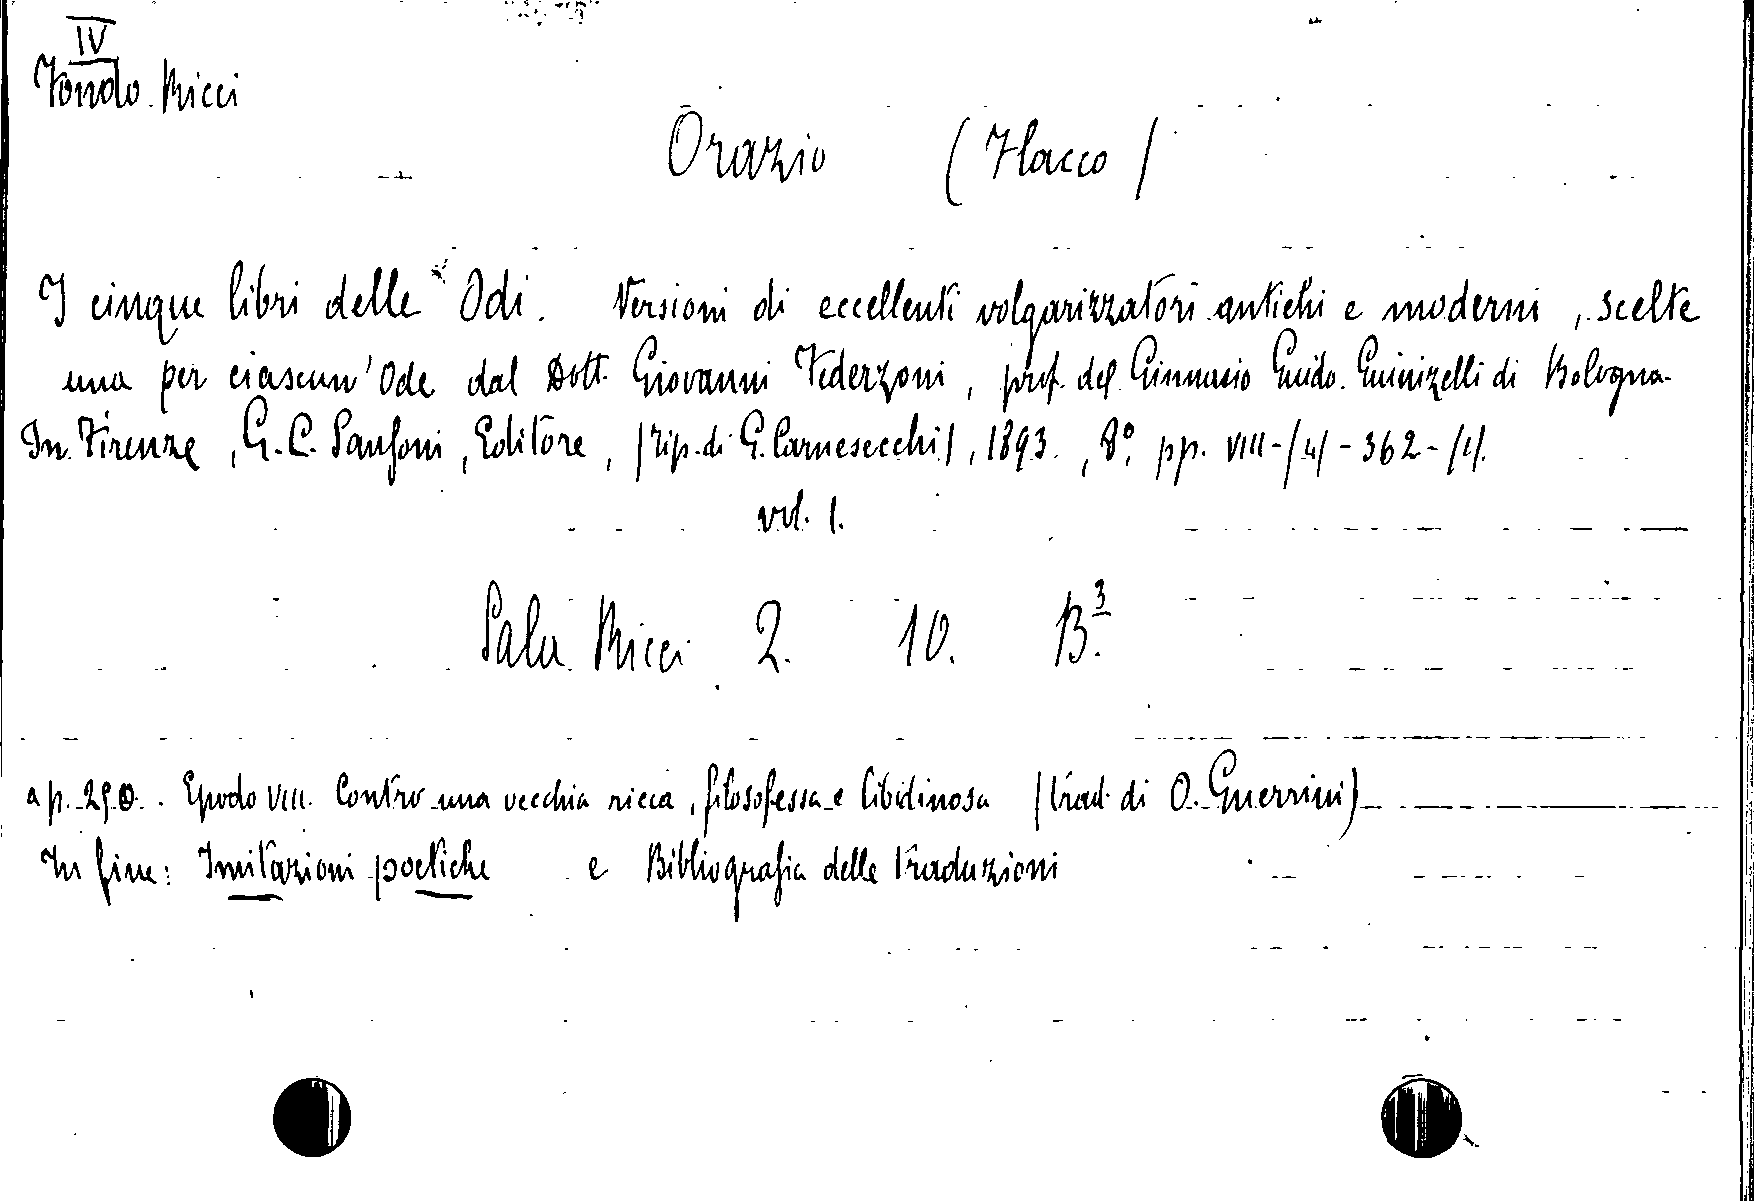 IV
Fondo Ricci
Orazio (Flacco)
I cinque libri delle Odi. Versioni di eccellenti volgarizzatori antichi e moderni, scelte
una per ciascun' Ode dal Dott. Giovanni Federzoni, prof. del Ginnasio Guido Guinizelli di Bologna.
In Firenze, G. C. Sansoni, Editore, (tip. di G. Carnesecchi), 1893., 8°, pp. VIII-(4)-362-(1).
vol. 1.
Sala Ricci 2. 10. B.3
a p. 290. Epodo VIII. Contro una vecchia ricca, filosofessa e libidinosa (trad. di O. Guerrini)
In fine: Imitazioni poetiche e Bibliografia delle traduzioni